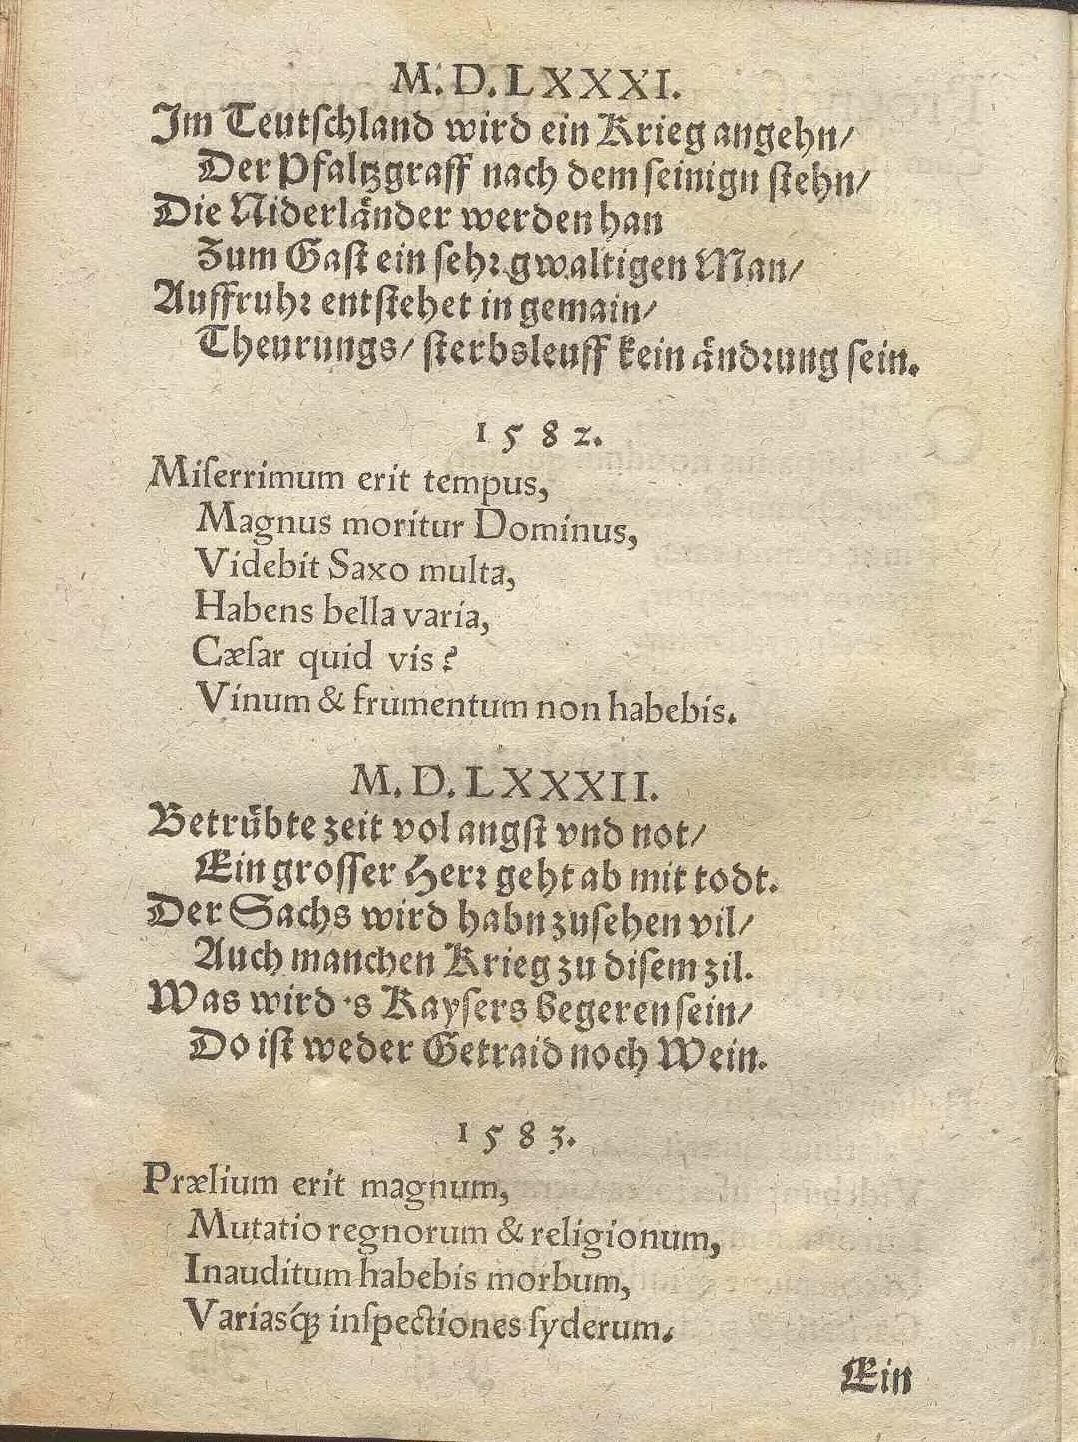 M. D. LXXXI.
Im Teutschland wird ein Krieg angehn/
Der Pfaltzgraff nach dem seinign stehn/
Die Niderländer werden han
Zum Gast ein sehr gwaltigen Man/
Auffruhr entstehet in gemain/
Theurungs/ sterbsleuff kein ändrung sein.
1582.
Miſerrimum erit tempus,
Magnus moritur Dominus,
Videbit Saxo multa,
Habens bella varia,
Cæſar quid vis?
Vinum & frumentum non habebis.
M. D. LXXXII.
Betrübte zeit vol angst vnd not/
Ein grosser Herr geht ab mit todt.
Der Sachs wird habn zusehen vil/
Auch manchen Krieg zu disem zil.
Was wird 's Kaysers begeren sein/
Do ist weder Getraid noch Wein.
1583.
Prælium erit magnum,
Mutatio regnorum & religionum,
Inauditum habebis morbum,
Variasq́; inſpectiones ſyderum.
Ein